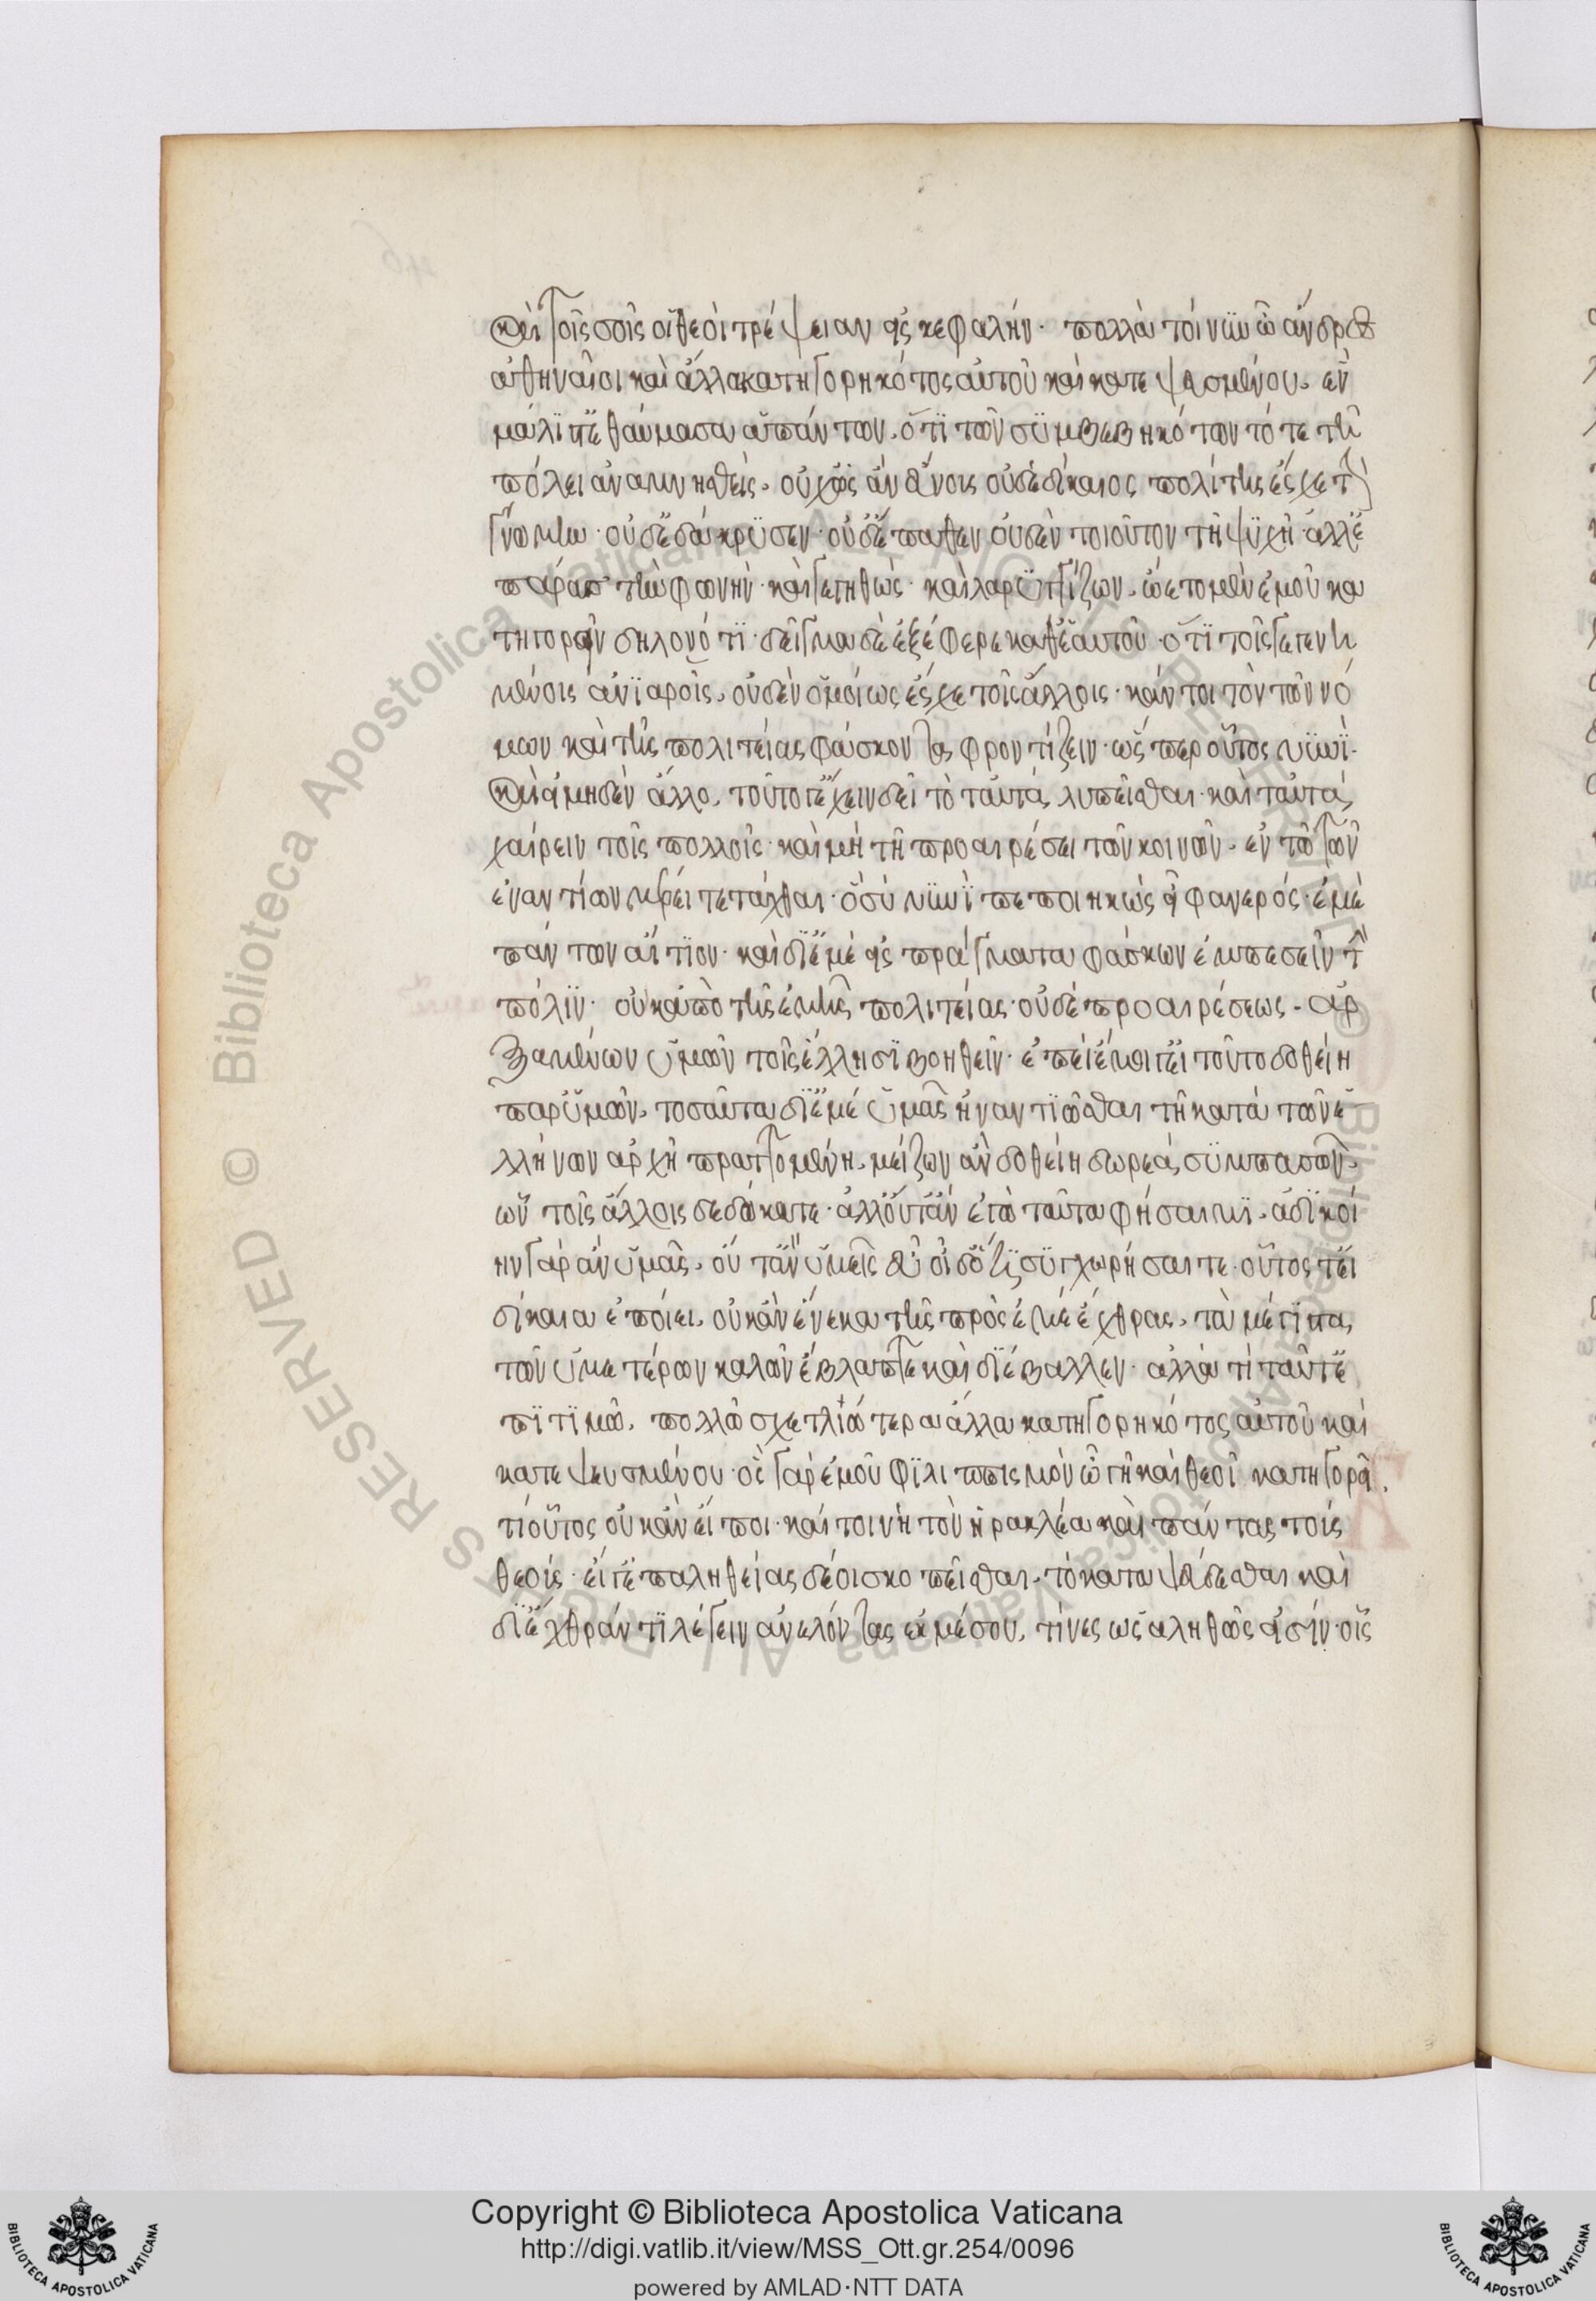 καὶ τοῖς σοῖς οἱ θεοὶ τρέψειαν εἰς κεφαλήν. πολλὰ τοίνυν ὦ ἄνδρες
ἀθηναῖοι καὶ ἄλλα κατηγορηκότος αὐτοῦ καὶ κατεψευσμένου. ἐν
μάλιστ' ἐθαύμασα ἁπάντων, ὅτι τῶν συμβεβηκότων τότε τῇ
πόλει ἀναμνησθείς. οὐχ ὡς ἂν εὔνους οὐδὲ δίκαιος πολίτης ἔσχε τὴν
γνώμην. οὐδ' ἐδάκρυσεν. οὐδ' ἔπαθεν οὐδὲν τοιοῦτον τῇ ψυχῇ. ἀλλ' ἐ
πάρας τὴν φωνὴν. καὶ γεγηθὼς. καὶ λαρυγγίζων. ὤετο μὲν ἐμοῦ κα
τηγορεῖν δηλονότι. δεῖγμα δὲ ἐξέφερε καθ' ἑαυτοῦ. ὅτι τοῖς γεγενη
μένοις ἀνιαροῖς, οὐδὲν ὁμοίως ἔσχε τοῖς ἄλλοις. καίτοι τὸν τῶν νό
μων καὶ τῆς πολιτείας φάσκοντα φροντίζειν. ὥσπερ οὗτος νυνὶ.
καὶ εἰ μηδὲν ἄλλο, τοῦτό γ' ἔχειν δεῖ τὸ ταὐτὰ λυπεῖσθαι. καὶ ταὐτὰ
χαίρειν τοῖς πολλοῖς. καὶ μὴ τῇ προαιρέσει τῶν κοινῶν. ἐν τῷ τῶν
ἐναντίων μέρει τετάχθαι. ὃ σὺ νυνὶ πεποιηκὼς εἶ φανερός. ἐμὲ
πάντων αἴτιον. καὶ δι' ἐμὲ εἰς πράγματα φάσκων ἐμπεσεῖν τὴν
πόλιν. οὐκ ἀπὸ τῆς ἐμῆς πολιτείας. οὐδὲ προαιρέσεως. ἀρ
ξαμένων ὑμῶν τοῖς ἕλλησι βοηθεῖν. ἐπεὶ ἔμοιγ' εἰ τοῦτο δοθείη
παρ' ὑμῶν. τοσαῦτα δι' ἐμέ ὑμᾶς ἠναντιῶσθαι τῇ κατὰ τῶν ἑ
λλήνων ἀρχῇ πραττομένῃ. μείζων ἂν δοθείη δωρεὰ συμπασῶν,
ὧν τοῖς ἄλλοις δεδώκατε. ἀλλ' οὔτ' ἂν ἐγὼ ταῦτα φήσαιμι. ἀδικοί
ην γὰρ ἂν ὑμᾶς. οὔτ' ἂν ὑμεῖς εὖ οἶδ' ὅτι συγχωρήσαιτε. οὗτός τ' εἰ
δίκαια ἐποίει. οὐκ ἂν ἕνεκα τῆς πρὸς ἐμὲ ἔχθρας, τὰ μέγιστα
τῶν ὑμετέρων καλῶν ἔβλαπτε καὶ διέβαλλεν. ἀλλὰ τί ταῦτ' ἐ
πιτιμῶ. πολλῷ σχετλιώτερα ἄλλα κατηγορηκότος αὐτοῦ καὶ
κατεψευσμένου. ὃς γὰρ ἐμοῦ φιλιππισμὸν ὦ γῆ καὶ θεοὶ κατηγορεῖ.
τί οὗτος οὐκ ἂν εἴποι. καίτοι νὴ τὸν ἡρακλέα καὶ πάντας τοὺς
θεούς. εἴ γ' ἐπ' ἀληθείας δέοι σκοπεῖσθαι. τὸ καταψεύδεσθαι καὶ
δι' ἔχθράν τι λέγειν ἀνελόντας ἐκ μέσου, τίνες ὡς ἀληθῶς εἰσίν. οἷς
Copyright © Biblioteca Apostolica Vaticana
http://digi.vatlib.it/view/MSS_Ott.gr.254/0096
powered by AMLAD·NTT DATA